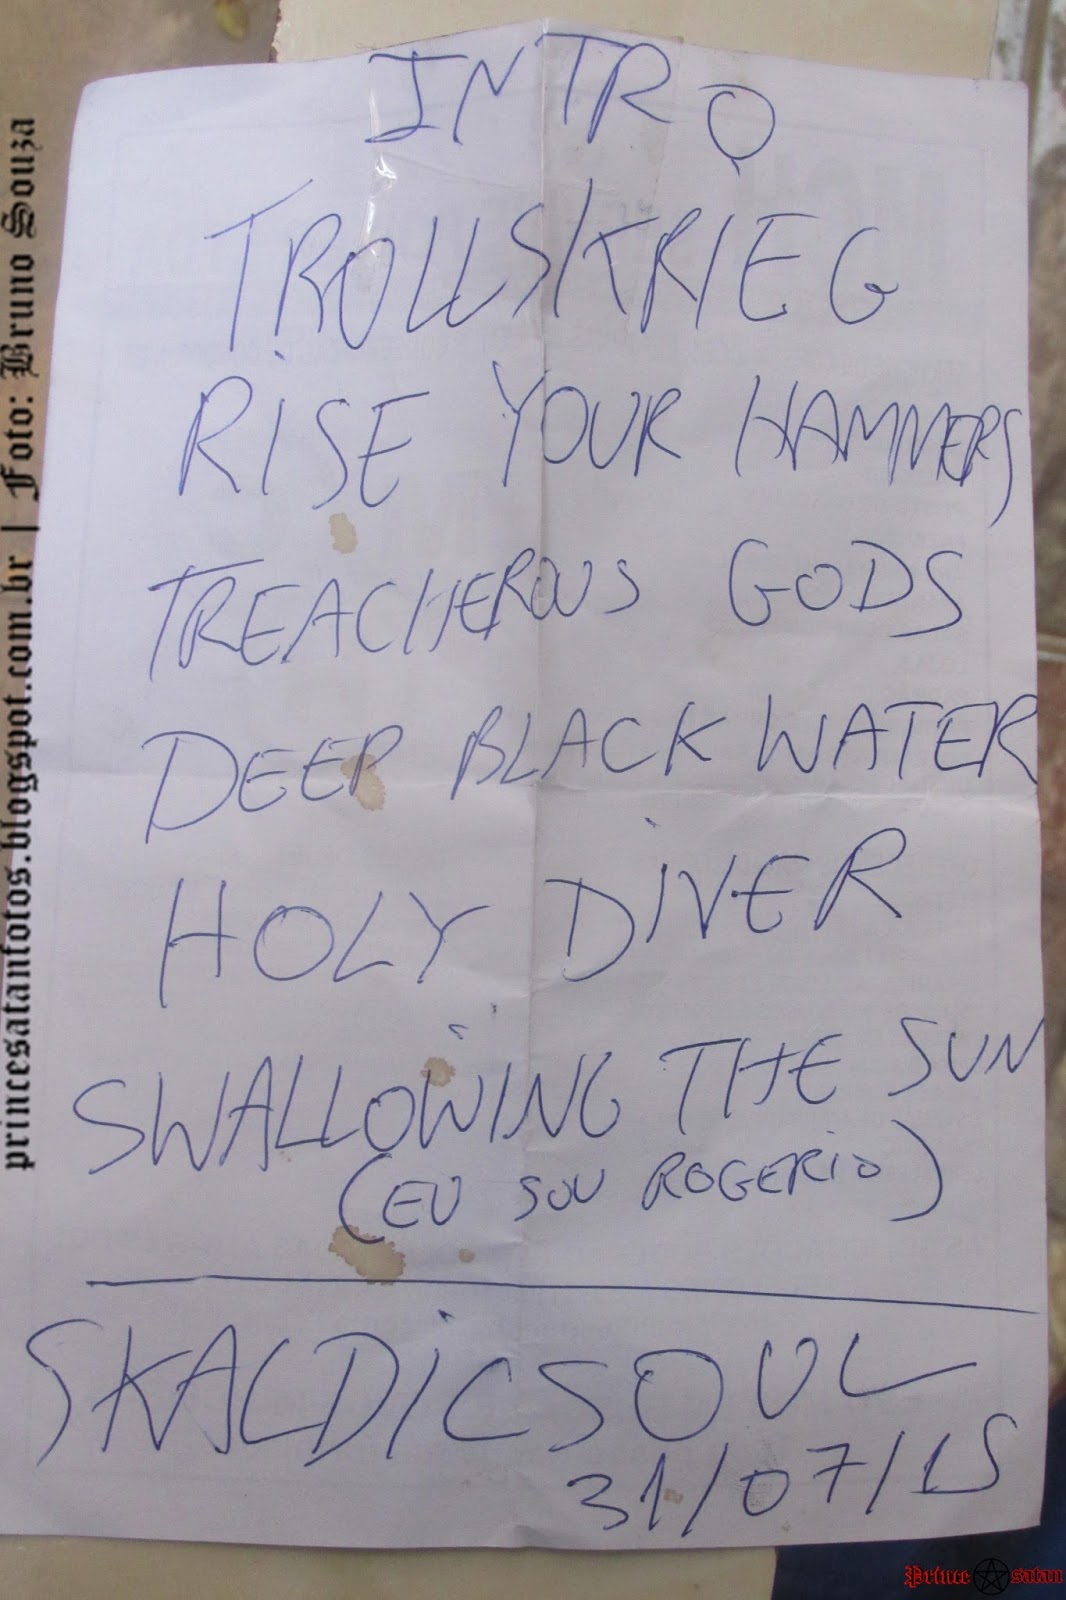 INTRO
TROLLSKRIEG
RISE YOUR HAMMERS
TREACHEROUS GODS
DEEP BLACK WATER
HOLY DIVER
SWALLOWING THE SUN
(EU SOU ROGERIO)
SKALDICSOUL
31/07/15
princesatanfotos.blogspot.com.br | Foto: Bruno Souza
Prince satan